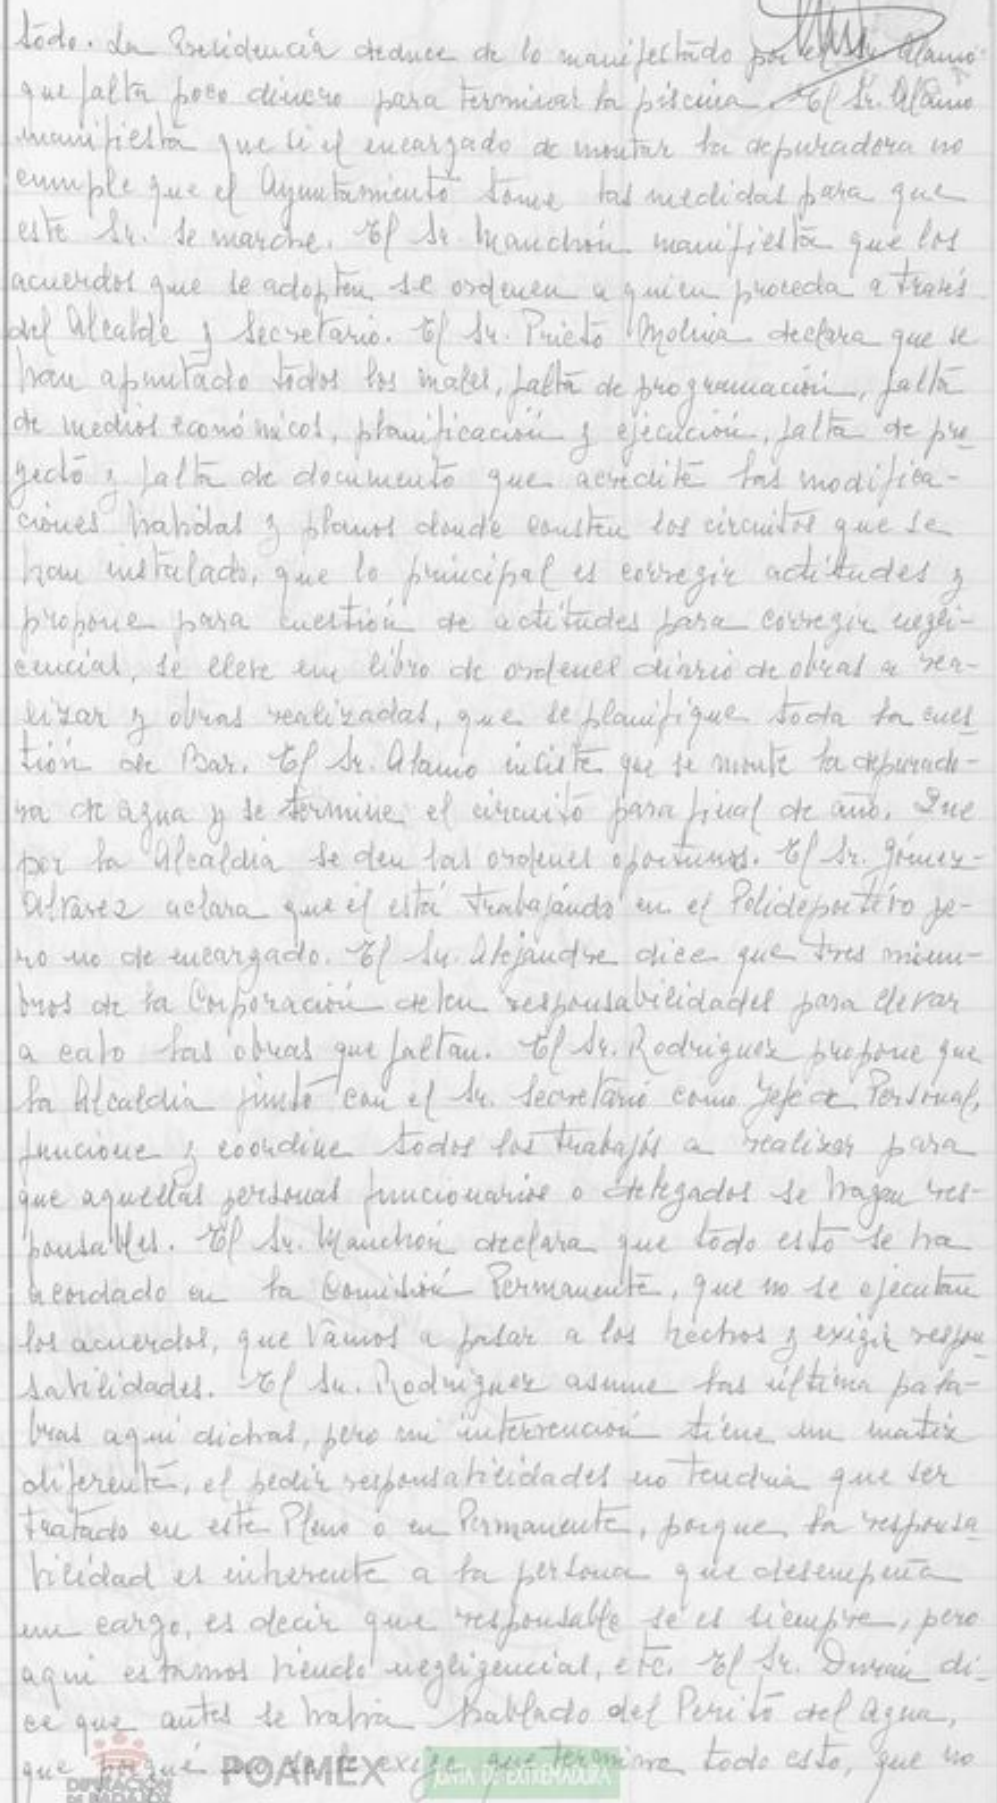 todo. La Presidencia deduce de lo manifestado por el Sr. Alamo
que falta poco dinero para terminar la piscina. El Sr. Alamo
manifiesta que si el encargado de montar la depuradora no
cumple que el Ayuntamiento tome las medidas para que
este Sr. se marche. El Sr. Manchón manifiesta que los
acuerdos que se adopten se ordenen a quien proceda a través
del Alcalde y Secretario. El Sr. Prieto Molina declara que se
han apuntado todos los males, falta de programación, falta
de medios económicos, planificación y ejecución, falta de pro
yecto y falta de documento que acredite las modifica-
ciones habidas y planos donde consten los circuitos que se
han instalado, que lo principal es corregir actitudes y
propone para cuestión de actitudes para corregir negli-
gencias, se lleve un libro de ordenes diario de obras a rea-
lizar y obras realizadas, que se planifique toda la cues
tión de Bar. El Sr. Alamo insiste que se monte la depurado-
ra de agua y se termine el circuito para final de año. Que
por la Alcaldia se den las ordenes oportunas. El Sr. Gómez-
Alvarez aclara que él está trabajando en el Polideportivo pe-
ro no de encargado. El Sr. Alejandre dice que tres miem-
bros de la Corporación deben responsabilidades para llevar
a cabo las obras que faltan. El Sr. Rodriguez propone que
la Alcaldia junto con el Sr. Secretario como Jefe de Personal,
funcione y coordine todos los trabajos a realizar para
que aquellas personas funcionarios o delegados se hagan res-
ponsables. El Sr. Manchón declara que todo esto se ha
acordado en la Comisión Permanente, que no se ejecutan
los acuerdos, que vamos a pasar a los hechos y exigir respon
sabilidades. El Sr. Rodriguez asume las última pala-
bras aqui dichas, pero mi intervención tiene un matiz
diferente, el pedir responsabilidades no tendria que ser
tratado en este Pleno o en Permanente, porque la responsa
bilidad es inherente a la persona que desempeña
un cargo, es decir que responsable se es siempre, pero
aqui estamos viendo negligencias, etc. El Sr. Durán di-
ce que antes se habia hablado del Perito del Agua,
que porqué no se le exige que termine todo esto, que no
DIPUTACIÓN
DE BADAJOZ
POAMEX
JUNTA DE EXTREMADURA